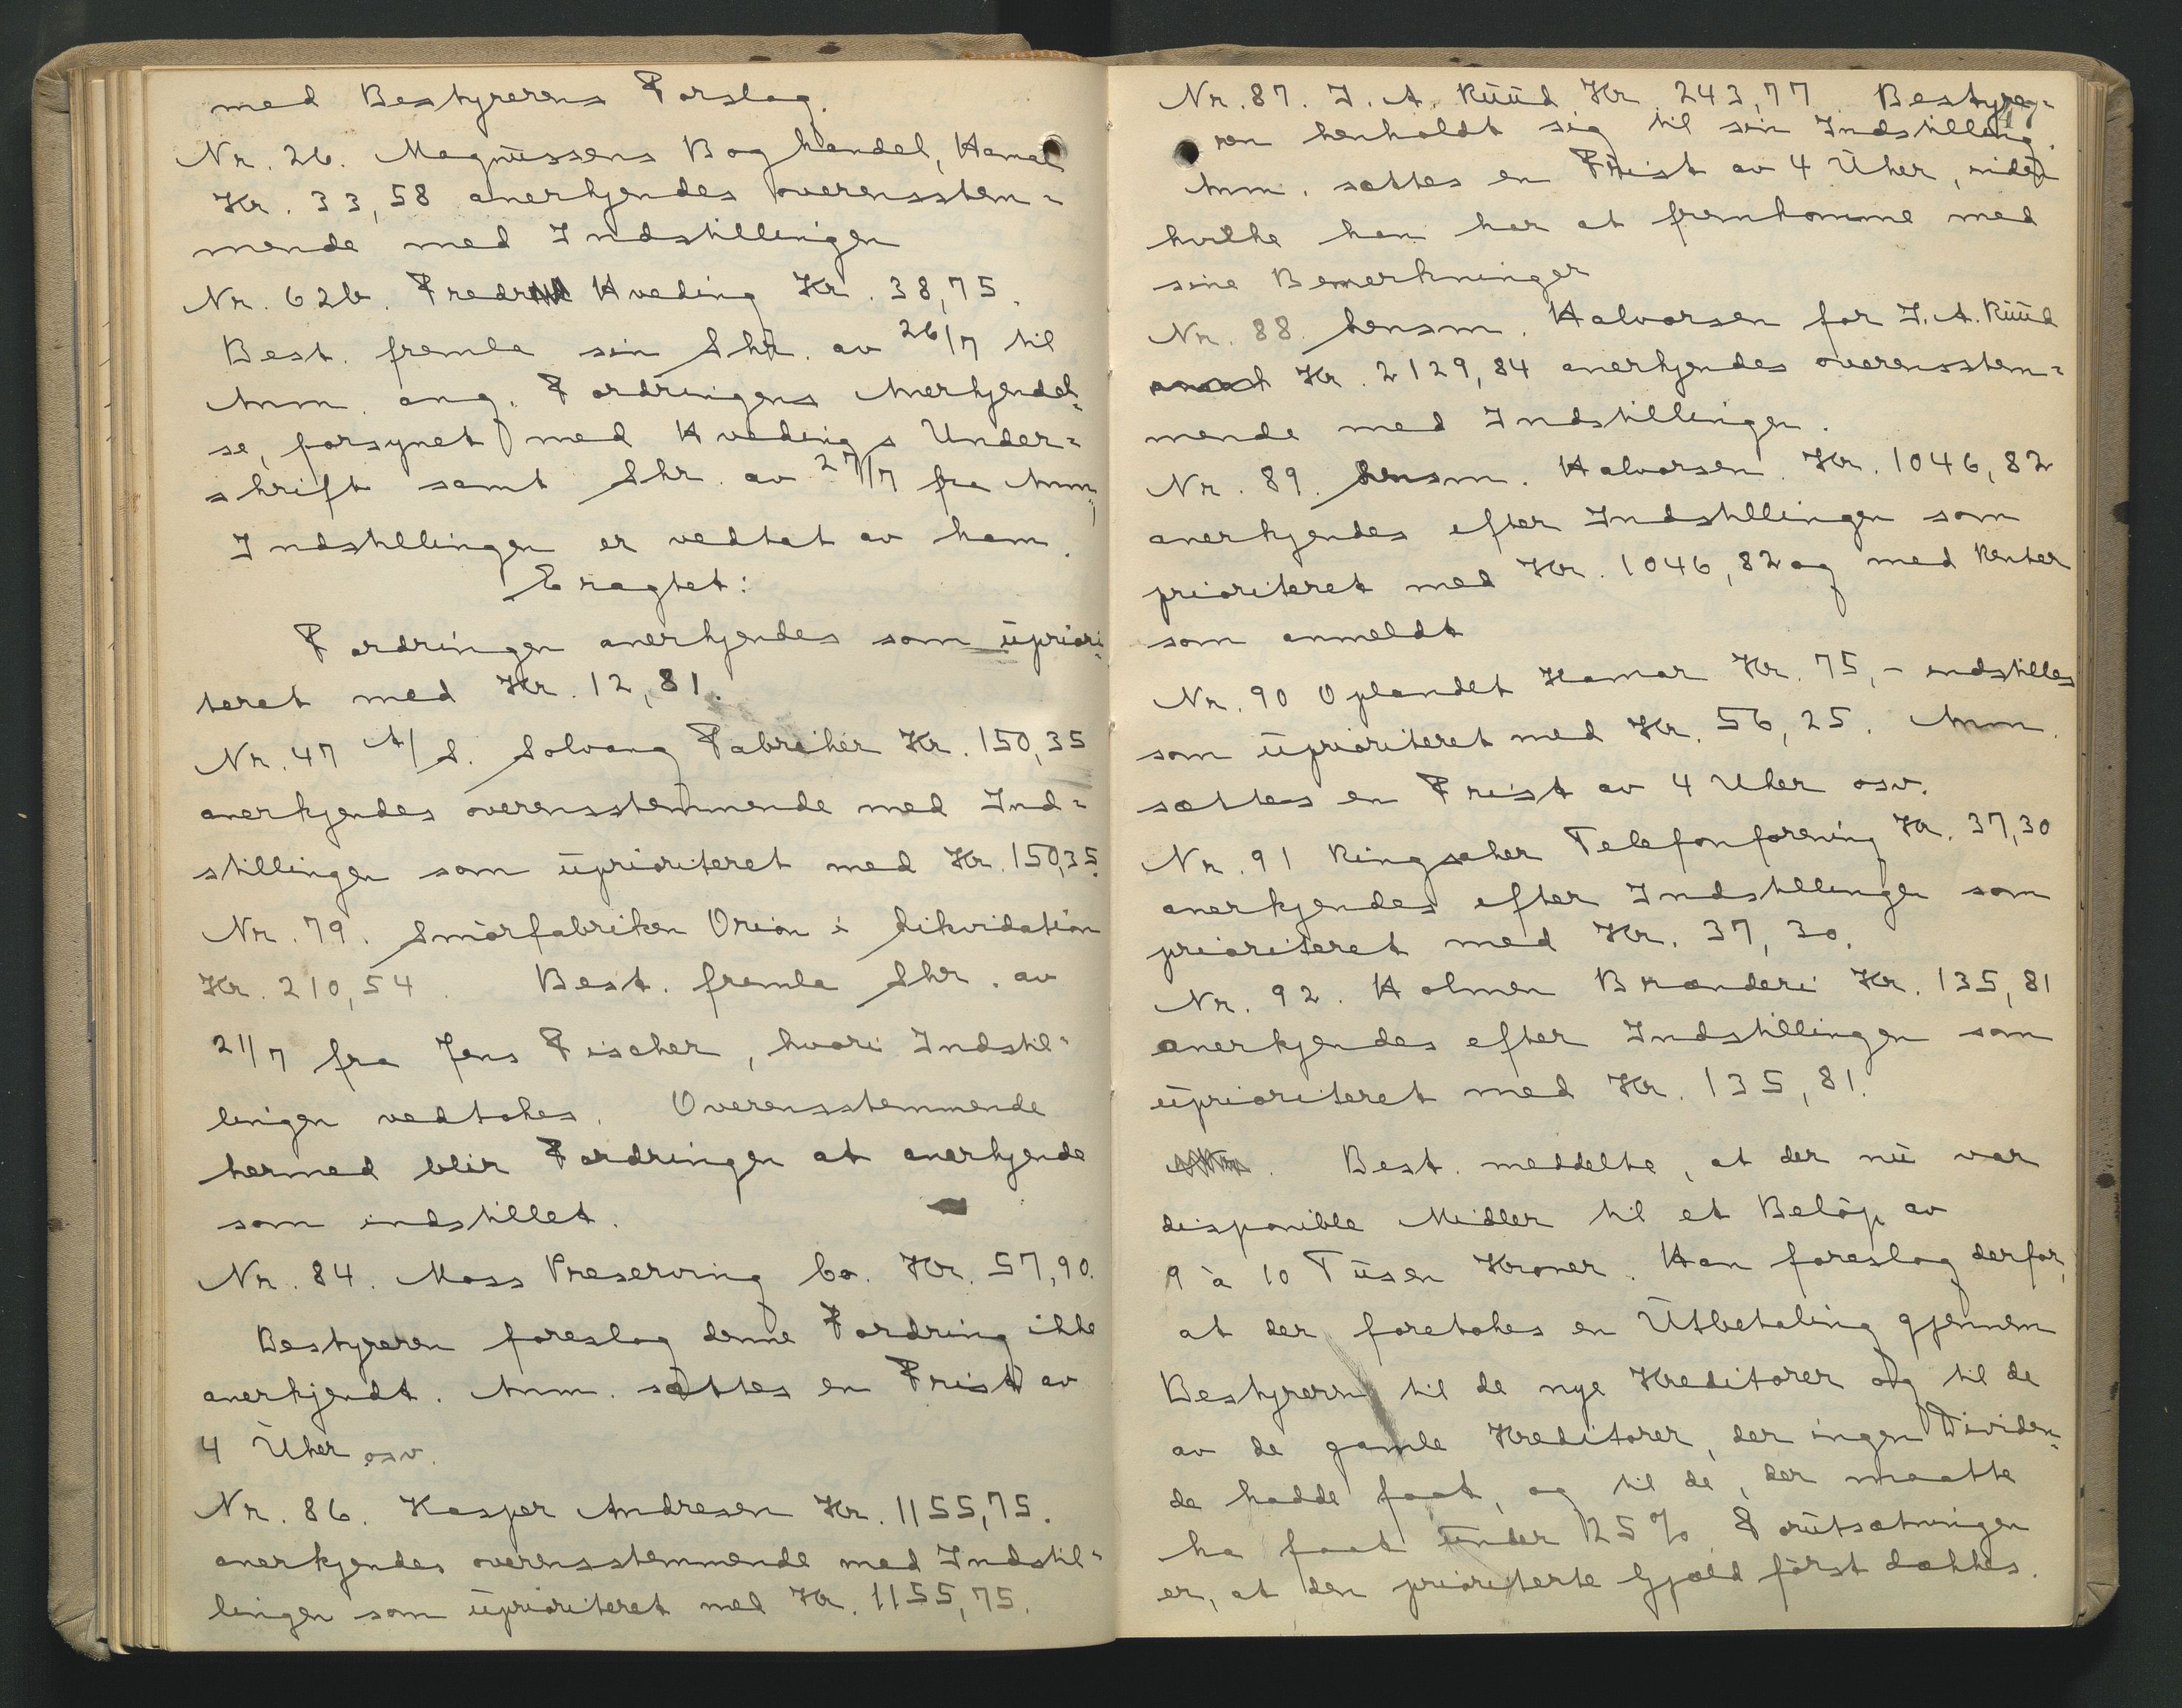 med Bestyrerens Forslag.
Nr. 26. Magnussens Boghandel, Hamar
Kr. 33,58 anerkjendes overensstem=
mende med Indstillingen
Nr. 62b. Fredr Hveding Kr. 38,75.
Best. fremla sin Skr. av 26/7 til
Anm. ang. Fordringens Anerkjendel=
se, forsynet med Hvedings Under=
skrift samt Skr. av 27/7 fra Anm.,
Indstillingen er vedtat av ham.
Eragtet:
Fordringen anerkjendes som upriori=
teret med Kr. 12,81.
Nr. 47 A/S. Solvang Fabriker Kr. 150,35
anerkjendes overensstemmende med Ind=
stillingen som uprioriteret med Kr. 150,35.
Nr. 79. Smörfabriken Orion i Likvidation
Kr. 210,54. Best. fremla Skr. av
21/7 fra Jens Fischer, hvori Indstil=
lingen vedtakes. Overensstemmende
hermed blir Fordringen at anerkjende
som indstillet.
Nr. 84. Moss Preserving Co. Kr. 57,90.
Bestyreren foreslog denne Fordring ikke
anerkjendt. Anm. sættes en Frist av
4 Uker osv.
Nr. 86. Kasper Andresen Kr. 1155,75.
anerkjendes overensstemmende med Indstil=
lingen som uprioriteret med Kr. 1155,75.
Nr. 87. J. A. Ruud Kr. 243,77. Bestyre=
ren henholdt sig til sin Indstilling.
Anm. sættes en Frist av 4 Uker, inden
hvilke han har at fremkomme med
sine Bemerkninger
Nr. 88. Lensm. Halvorsen for J. A. Ruud
Kr. 2129,84 anerkjendes overensstem=
mende med Indstillingen.
Nr. 89. Lensm. Halvorsen. Kr. 1046,82
anerkjendes efter Indstillingen som
prioriteret med Kr. 1046,82 og med Renter
som anmeldt
Nr. 90 Oplandet Hamar Kr. 75,- indstilles
som uprioriteret med Kr. 56,25. Anm.
sættes en Frist av 4 Uker osv.
Nr. 91 Ringsaker Telefonforening Kr. 37,30
anerkjendes efter Indstillingen som
prioriteret med Kr. 37,30.
Nr. 92. Holmen Brænderi Kr. 135,81
anerkjendes efter Indstillingen som
uprioriteret med Kr. 135,81.
Best. meddelte, at der nu var
disponible Midler til et Belöp av
9 à 10 Tusen Kroner. Han foreslog derfor,
at der foretakes en Utbetaling gjennem
Bestyreren til de nye Kreditorer og til de
av de gamle Kreditorer, der ingen Dividen=
de hadde faat, og til de, der maatte
ha faat under 25%. Forutsætningen
er, at den prioriterte Gjæld först dækkes.